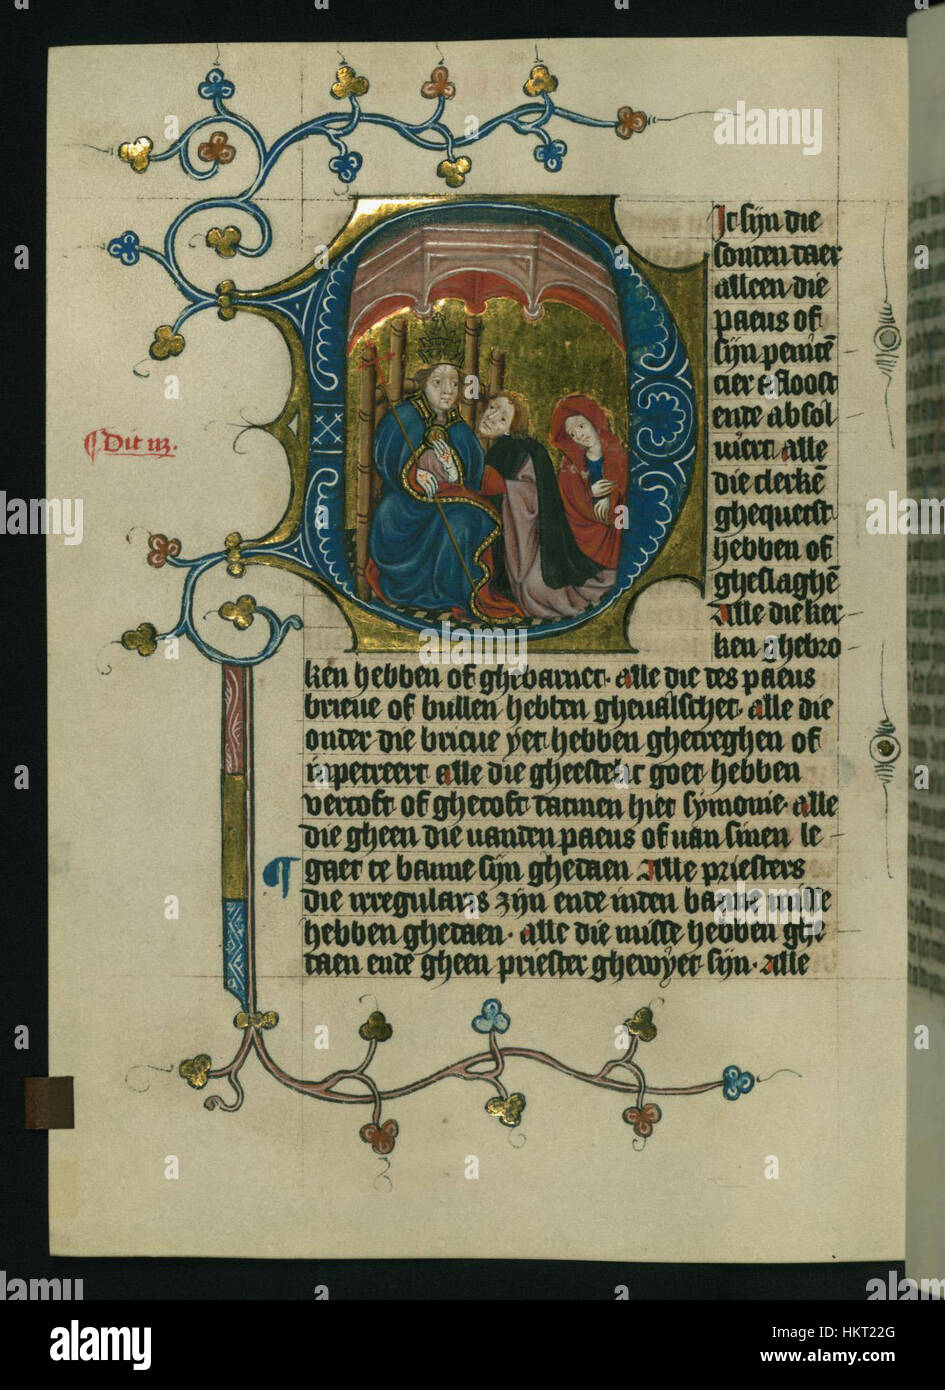 It sijn die
sonden daer
alleen die
paeus of
sijn penitē
cier af loost
ende absol
uiert alle
die clerkē
ghequetst
hebben of
gheslaghē
Alle die ker
ken ghebro
ken hebben of ghebarnet· alle die des paeus
brieue of bullen hebben gheualschet· alle die
onder die brieue yet hebben ghecreghen of
inpetreert alle die gheestelic goet hebben
vercoft of ghecoft datmen hiet symonie· alle
die gheen die vanden paeus of van sinen le
¶ gaet te banne sijn ghedaen Alle priesters
die irregularis zijn ende inden banne misse
hebben ghedaen· alle die misse hebben ghe
daen ende gheen priester ghewyet sijn· alle
¶ Dit
alamy
Image ID: HKT22G
www.alamy.com